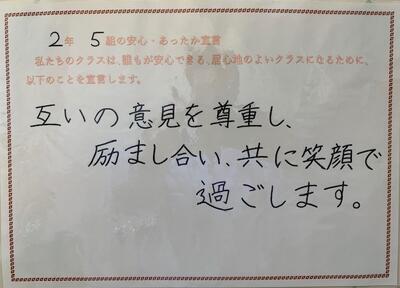 2年 5組の安心・あったか宣言
私たちのクラスは、誰もが安心できる、居心地のよいクラスになるために、
以下のことを宣言します。
互いの意見を尊重し、
励まし合い、共に笑顔で
過ごします。